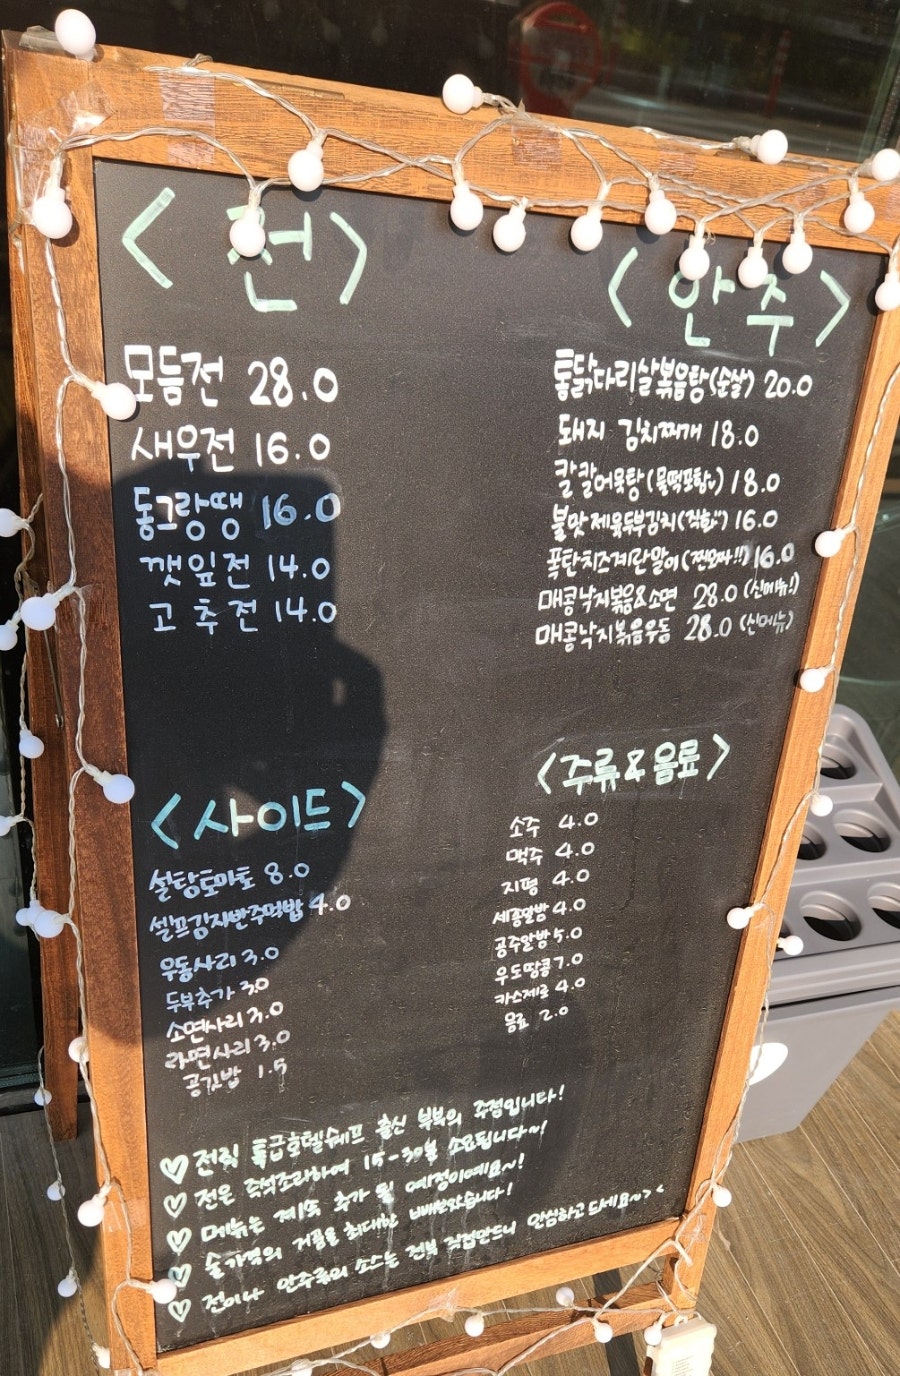 <전>
모듬전 28.0
새우전 16.0
동그랑땡 16.0
깻잎전 14.0
고추전 14.0
<안주>
통닭다리살볶음탕(순살) 20.0
돼지 김치찌개 18.0
칼칼어묵탕(물떡포함) 18.0
불맛제육두부김치(직화) 16.0
폭탄치즈계란말이(찐모짜!!) 16.0
매콤낙지볶음&소면 28.0 (신메뉴!)
매콤낙지볶음우동 28.0 (신메뉴)
<사이드>
설탕토마토 8.0
셀프김자반주먹밥 4.0
우동사리 3.0
두부추가 3.0
소면사리 3.0
라면사리 3.0
공깃밥 1.5
<주류&음료>
소주 4.0
맥주 4.0
지평 4.0
세종알밤 4.0
공주알밤 5.0
우도땅콩 7.0
카스제로 4.0
음료 2.0
♡ 전직 특급호텔쉐프 출신 부부의 주점입니다!
♡ 전은 즉석조리하여 15-30분 소요됩니다~!
♡ 메뉴는 계속 추가 될 예정이에요~!
♡ 술가격의 거품을 최대한 빼보았습니다!
♡ 전이나 안주류의 소스는 전부 직접만드니 안심하고 드세요~><